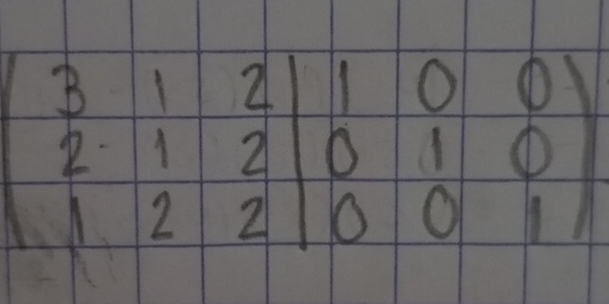 ( 3 1 2 | 1 0 0 )
( 2 1 2 | 0 1 0 )
( 1 2 2 | 0 0 1 )